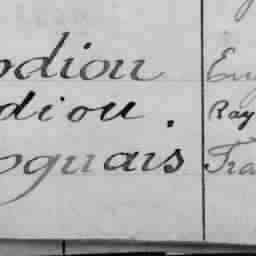 odiou Eug
diou. Ray
oguais Fra